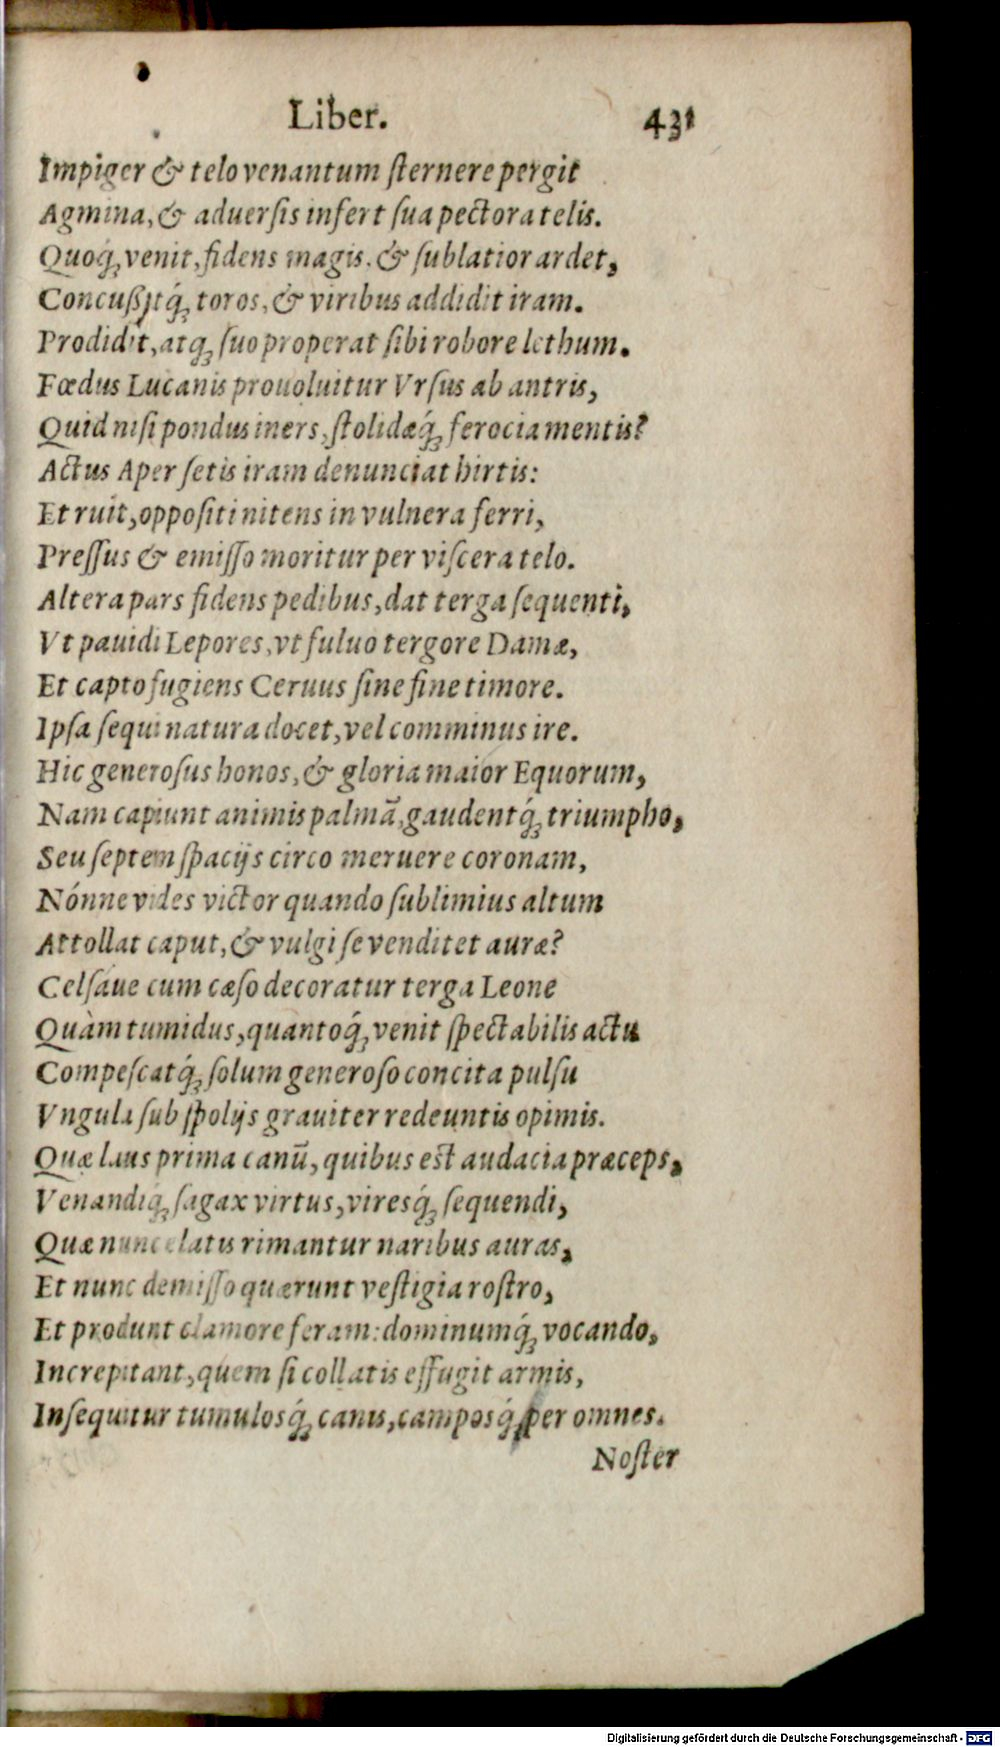 Liber. 431
Impiger & telo venantum ſternere pergit
Agmina, & aduerſis infert ſua pectora telis.
Quoq́ꝫ venit, fidens magis. & ſublatior ardet,
Concußitq́ꝫ toros, & viribus addidit iram.
Prodidit, atqꝫ ſuo properat ſibi robore lethum.
Fœdus Lucanis prouoluitur Vrſus ab antris,
Quid niſi pondus iners, ſtolidæq́ꝫ ferocia mentis?
Actus Aper ſetis iram denunciat hirtis:
Et ruit, oppoſiti nitens in vulnera ferri,
Preſſus & emiſſo moritur per viſcera telo.
Altera pars fidens pedibus, dat terga ſequenti,
Vt pauidi Lepores, vt fuluo tergore Damæ,
Et capto fugiens Ceruus ſine fine timore.
Ipſa ſequi natura docet, vel comminus ire.
Hic generoſus honos, & gloria maior Equorum,
Nam capiunt animis palmā, gaudentq́ꝫ triumpho,
Seu ſeptem ſpacijs circo meruere coronam,
Nónne vides victor quando ſublimius altum
Attollat caput, & vulgi ſe venditet auræ?
Celſáue cum cæſo decoratur terga Leone
Quàm tumidus, quantoq́ꝫ venit ſpectabilis actu
Compeſcatq́ꝫ ſolum generoſo concita pulſu
Vngula ſub ſpolijs grauiter redeuntis opimis.
Quæ laus prima canū, quibus est audacia præceps,
Venandiq́ꝫ ſagax virtus, viresq́ꝫ ſequendi,
Quæ nunc elatis rimantur naribus auras,
Et nunc demiſſo quærunt veſtigia roſtro,
Et produnt clamore feram: dominumq́ꝫ vocando,
Increpitant, quem ſi collatis effugit armis,
Inſequitur tumulosq́ꝫ canis, camposq́ꝫ per omnes.
Noſter
Digitalisierung gefördert durch die Deutsche Forschungsgemeinschaft - DFG